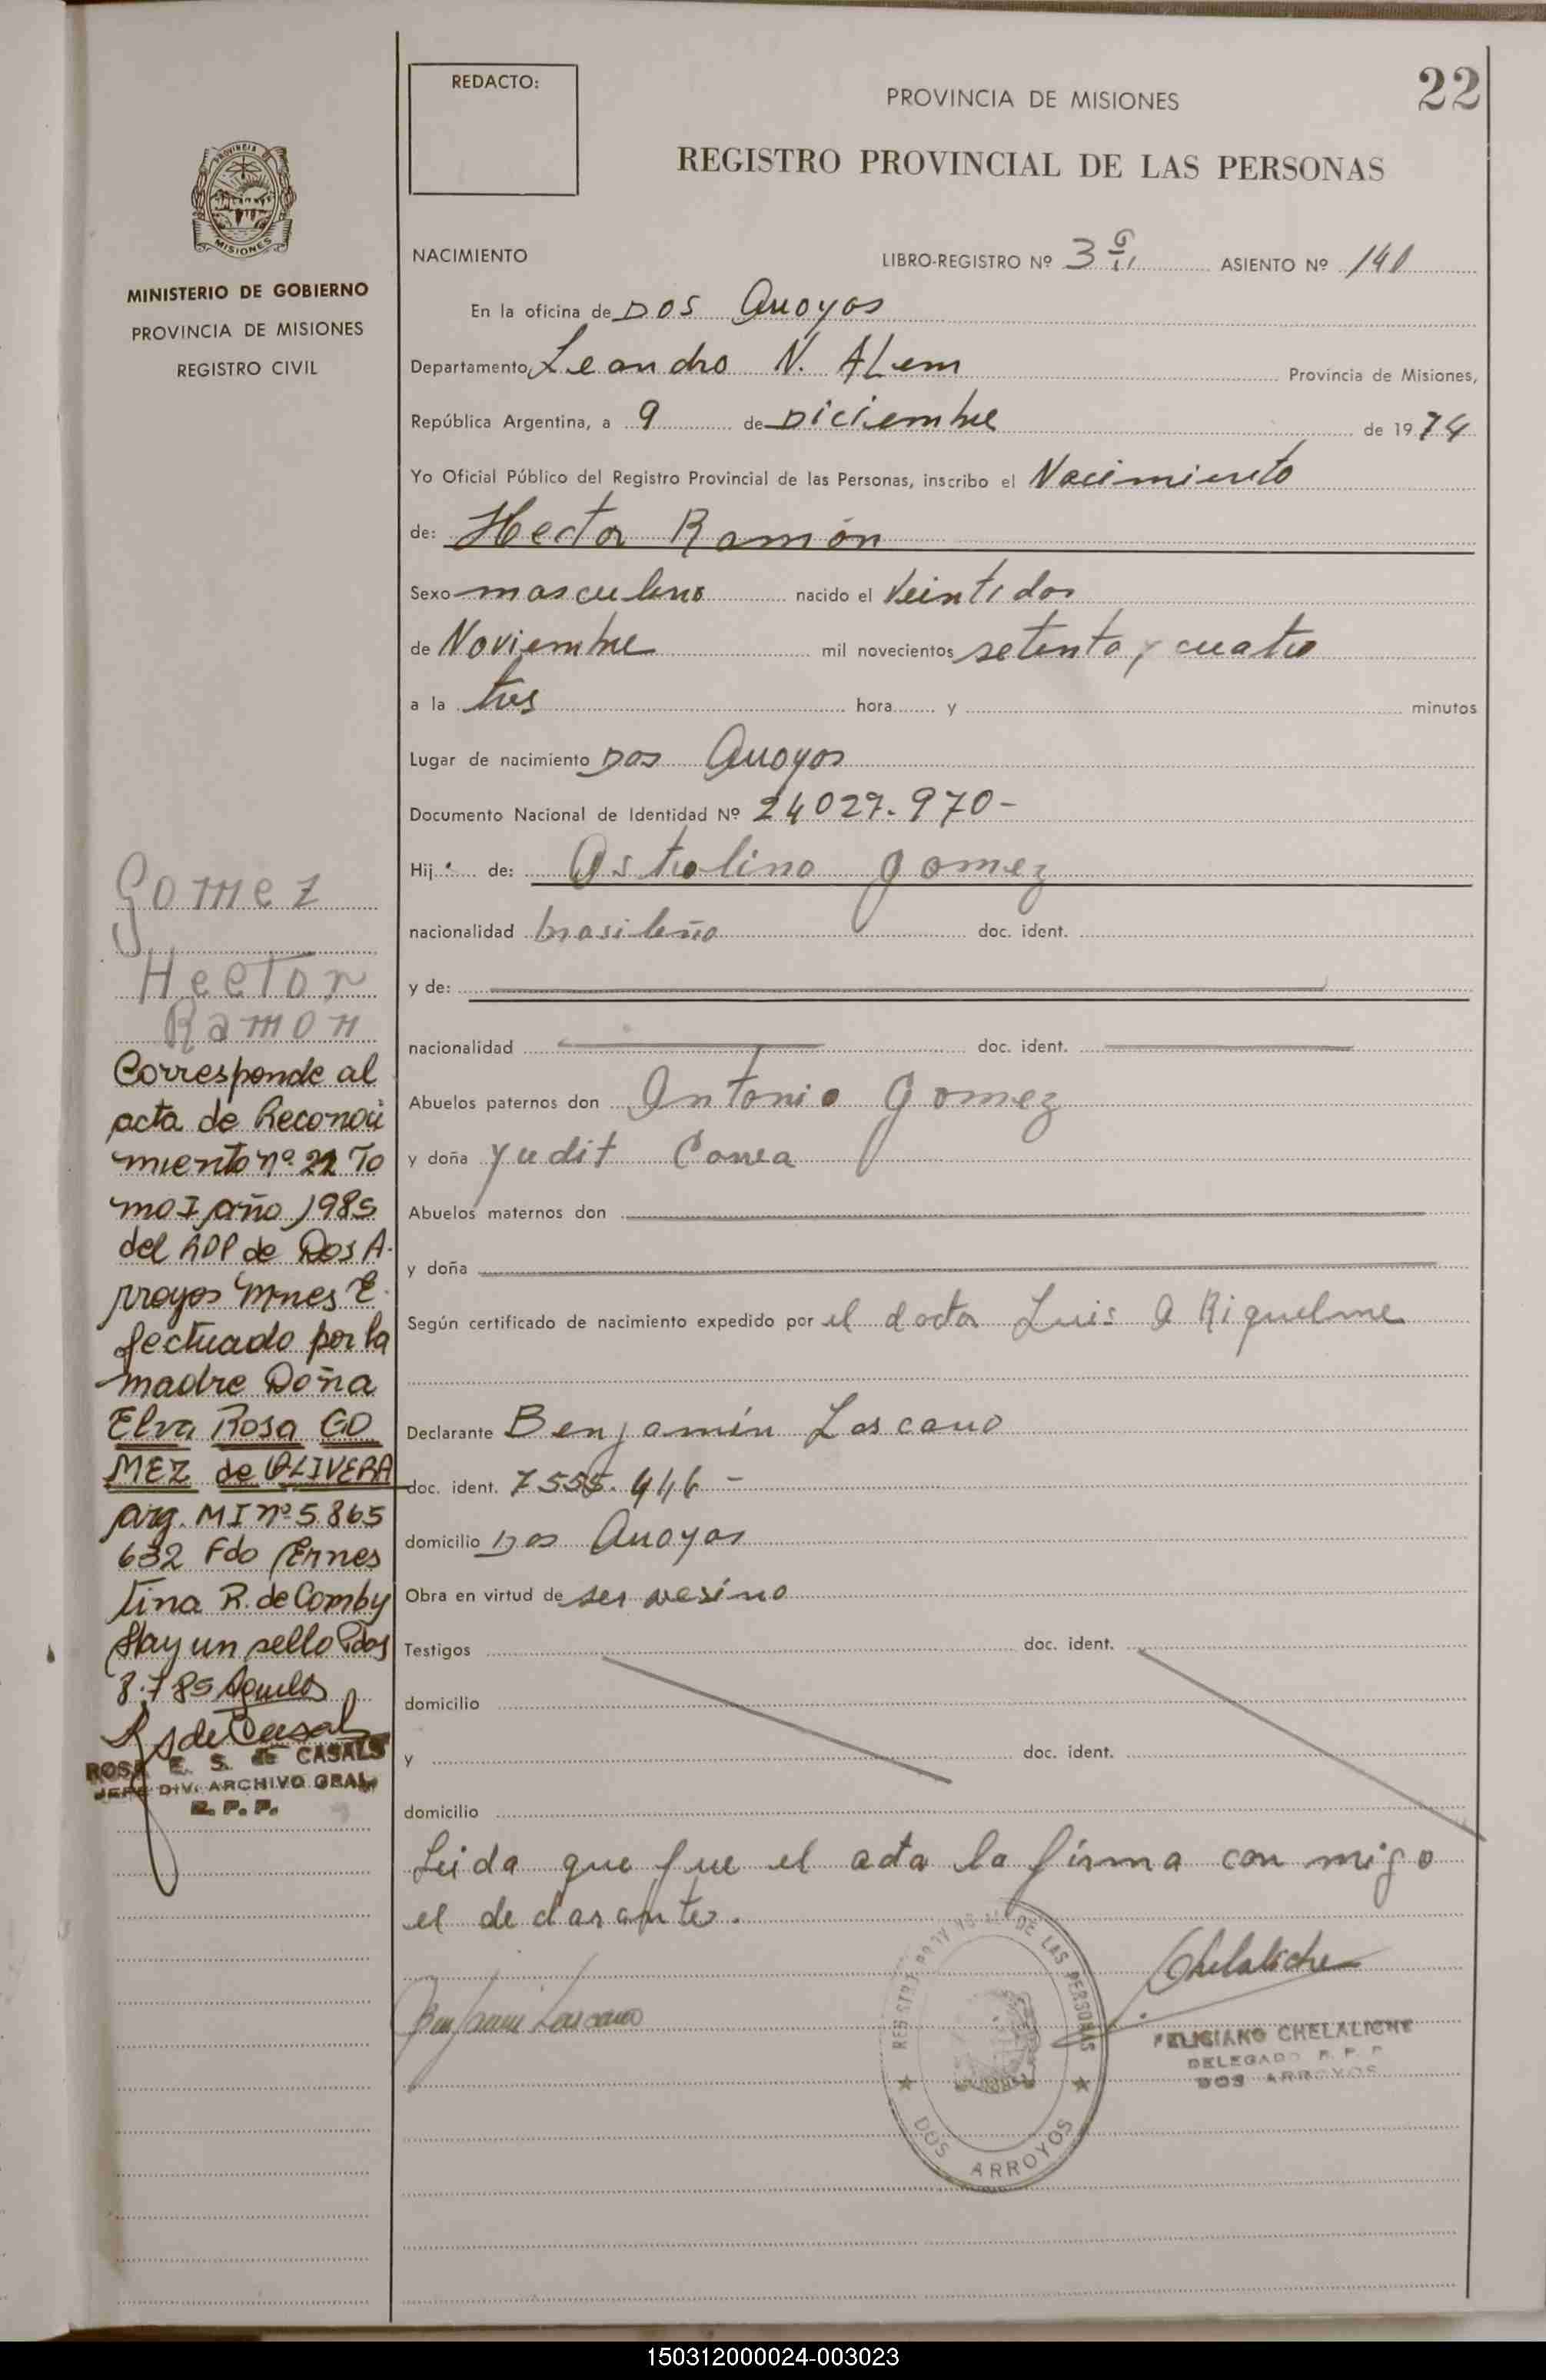 REDACTO:
PROVINCIA DE MISIONES
22
REGISTRO PROVINCIAL DE LAS PERSONAS
NACIMIENTO
LIBRO-REGISTRO Nº 3 ASIENTO Nº 141
En la oficina de Dos Arroyos
Departamento Leandro N. ALem Provincia de Misiones,
República Argentina, a 9 de Diciembre de 1974
Yo Oficial Público del Registro Provincial de las Personas, inscribo el Nacimiento
de: Hector Ramón
Sexo masculino nacido el Veintidos
de Noviembre mil novecientos setenta y cuatro
a la tres hora y minutos
Lugar de nacimiento Dos Arroyos
Documento Nacional de Identidad Nº 24027.970-
Hijo de: Astrolino Gomez
nacionalidad brasileño doc. ident.
y de:
nacionalidad doc. ident.
Abuelos paternos don Antonio Gomez
y doña Yudit Correa
Abuelos maternos don
y doña
Según certificado de nacimiento expedido por el doctor Luis A Riquelme
Declarante Benjamín Loscano
doc. ident. 7555.446-
domicilio Dos Arroyos
Obra en virtud de ser vesino
Testigos doc. ident.
domicilio
y doc. ident.
domicilio
Leida que fue el acta la firma con migo
el declarante.
Benjamin Loscano
Chelaliche
FELICIANO CHELALICHE
DELEGADO R. P. P.
DOS ARROYOS
REGISTRO PROVINCIAL DE LAS PERSONAS
DOS ARROYOS
PROVINCIA DE
MISIONES
MINISTERIO DE GOBIERNO
PROVINCIA DE MISIONES
REGISTRO CIVIL
Gomez
Hector
Ramon
Corresponde al
acta de Reconoci
miento nº 22 To
mo I año 1985
del RPP de Dos A.
rroyos Mnes E
fectuado por la
madre Doña
Elva Rosa GO
MEZ de OLIVERA
arg. MI nº 5.865
632 Fdo Ernes
tina R. de Comby
Hay un sello Pdas
8.7 85
ROSA E. S. de CASALS
JEFE DIV. ARCHIVO GRAL.
R. P. P.
150312000024-003023